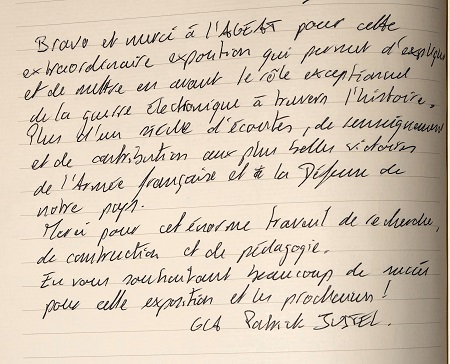 Bravo et merci à l'AGEAT pour cette
extraordinaire exposition qui permet d'expliquer
et de mettre en avant le rôle exceptionnel
de la guerre électronique à travers l'histoire.
Plus d'un siècle d'écoutes, de renseignement
et de contribution aux plus belles victoires
de l'Armée française et à la Défense de
notre pays.
Merci pour cet énorme travail de recherche,
de construction et de pédagogie.
En vous souhaitant beaucoup de succès
pour cette exposition et les prochaines !
GCA Patrick JUSTEL.